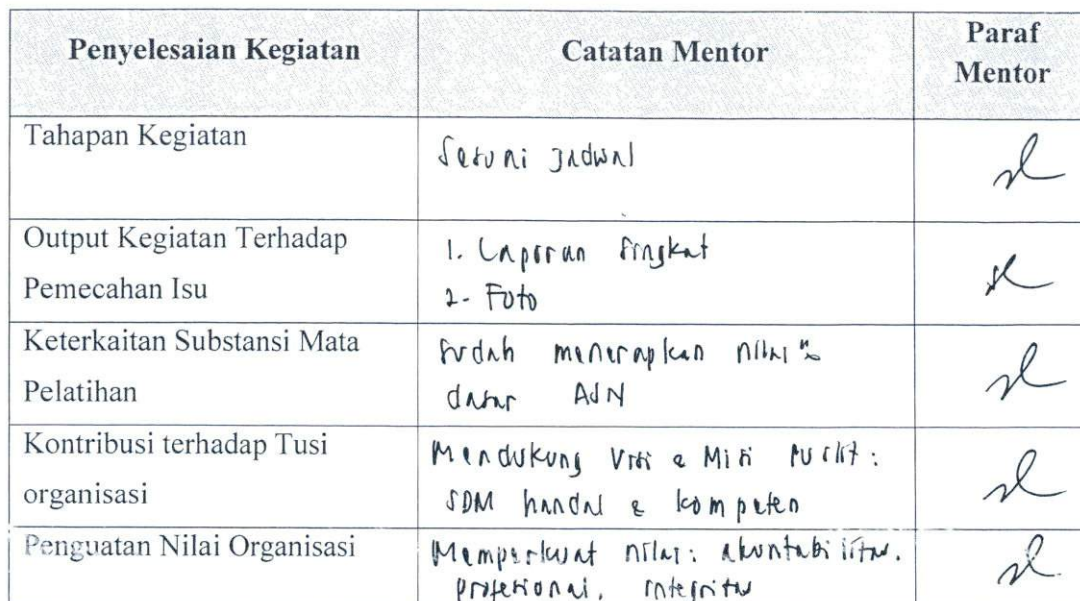 Penyelesaian Kegiatan
Catatan Mentor
Paraf
Mentor
Tahapan Kegiatan
Sesuai jadwal
Output Kegiatan Terhadap
Pemecahan Isu
1. Laporan singkat
2- Foto
Keterkaitan Substansi Mata
Pelatihan
sudah menerapkan nilai"
dasar ASN
Kontribusi terhadap Tusi
organisasi
Mendukung Visi & Misi :
SDM handal & kompeten
Penguatan Nilai Organisasi
Memperkuat nilai: akuntabilitas.
profesional, integritas